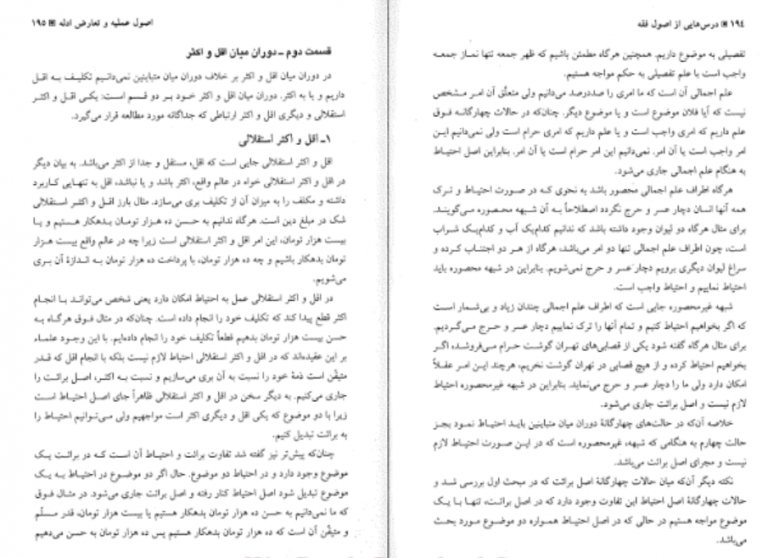 ۱۹۴ ▣ درس‌هایی از اصول فقه
تفصیلی به موضوع داریم. همچنین هرگاه مطمئن باشیم که ظهر جمعه تنها نماز جمعه
واجب است با علم تفصیلی به حکم مواجه هستیم.
علم اجمالی آن است که ما امری را صددرصد می‌دانیم ولی متعلّق آن امر مشخص
نیست که آیا فلان موضوع است و یا موضوع دیگر. چنان‌که در حالات چهارگانه فوق
علم داریم که امری واجب است و یا علم داریم که امری حرام است ولی نمی‌دانیم این
امر واجب است یا آن امر. نمی‌دانیم این امر حرام است یا آن امر. بنابراین اصل احتیاط
به هنگام علم اجمالی جاری می‌شود.
هرگاه اطراف علم اجمالی محصور باشد به نحوی که در صورت احتیاط و ترک
همه آنها انسان دچار عسر و حرج نگردد اصطلاحاً به آن شبهه محصوره می‌گویند.
برای مثال هرگاه دو لیوان وجود داشته باشد که ندانیم کدام‌یک آب و کدام‌یک شراب
است، چون اطراف علم اجمالی تنها دو امر می‌باشد، هرگاه از هر دو اجتناب کرده و
سراغ لیوان دیگری برویم دچار عسر و حرج نمی‌شویم. بنابراین در شبهه محصوره باید
احتیاط نماییم و احتیاط واجب است.
شبهه غیرمحصوره جایی است که اطراف علم اجمالی چندان زیاد و بی‌شمار است
که اگر بخواهیم احتیاط کنیم و تمام آنها را ترک نماییم دچار عسر و حرج می‌گردیم.
برای مثال هرگاه گفته شود یکی از قصابی‌های تهران گوشت حرام می‌فروشد، اگر
بخواهیم احتیاط کرده و از هیچ قصابی در تهران گوشت نخریم، هرچند این امر عقلاً
امکان دارد ولی ما را دچار عسر و حرج می‌نماید. بنابراین در شبهه غیرمحصوره احتیاط
لازم نیست و اصل برائت جاری می‌شود.
خلاصه آن‌که در حالت‌های چهارگانهٔ دوران میان متباینین باید احتیاط نمود بجز
حالت چهارم به هنگامی که شبهه، غیرمحصوره است که در این صورت احتیاط لازم
نیست و مجرای اصل برائت می‌باشد.
نکته دیگر آن‌که میان حالات چهارگانهٔ اصل برائت که در مبحث اول بررسی شد و
حالات چهارگانهٔ اصل احتیاط این تفاوت وجود دارد که در اصل برائت، تنها با یک
موضوع مواجه هستیم در حالی که در اصل احتیاط همواره دو موضوع مورد بحث
می‌باشد.
اصول عملیه و تعارض ادله ▣ ۱۹۵
قسمت دوم ـ دوران میان اقل و اکثر
در دوران میان اقل و اکثر بر خلاف دوران میان متباینین نمی‌دانیم تکلیف به اقل
داریم و یا به اکثر. دوران میان اقل و اکثر خود بر دو قسم است: یکی اقل و اکثر
استقلالی و دیگری اقل و اکثر ارتباطی که جداگانه مورد مطالعه قرار می‌گیرد.
۱ـ اقل و اکثر استقلالی
اقل و اکثر استقلالی جایی است که اقل، مستقل و جدا از اکثر می‌باشد. به بیان دیگر
در اقل و اکثر استقلالی خواه در عالم واقع، اکثر باشد و یا نباشد، اقل به تنهایی کاربرد
داشته و مکلف را به میزان آن از تکلیف بری می‌سازد. مثال بارز اقل و اکثر استقلالی
شک در مبلغ دین است. هرگاه ندانیم به حسن ده هزار تومان بدهکار هستیم و یا
بیست هزار تومان، این امر اقل و اکثر استقلالی است زیرا چه در عالم واقع بیست هزار
تومان بدهکار باشیم و چه ده هزار تومان، با پرداخت ده هزار تومان به اندازهٔ آن بری
می‌شویم.
در اقل و اکثر استقلالی عمل به احتیاط امکان دارد یعنی شخص می‌تواند با انجام
اکثر قطع پیدا کند که تکلیف خود را انجام داده است. چنان‌که در مثال فوق هرگاه به
حسن بیست هزار تومان بدهیم قطعاً تکلیف خود را انجام داده‌ایم. با این وجود علماء
بر این عقیده‌اند که در اقل و اکثر استقلالی احتیاط لازم نیست بلکه با انجام اقل که قدر
متیقّن است ذمهٔ خود را نسبت به آن بری می‌سازیم و نسبت به اکثر، اصل برائت را
جاری می‌کنیم. به دیگر سخن در اقل و اکثر استقلالی ظاهراً جای اصل احتیاط است
زیرا با دو موضوع که یکی اقل و دیگری اکثر است مواجهیم ولی می‌توانیم احتیاط را
به برائت تبدیل کنیم.
چنان‌که پیش‌تر نیز گفته شد تفاوت برائت و احتیاط آن است که در برائت یک
موضوع وجود دارد و در احتیاط دو موضوع. حال اگر دو موضوع در احتیاط به یک
موضوع تبدیل شود اصل احتیاط کنار رفته و اصل برائت جاری می‌شود. در مثال فوق
که ما نمی‌دانیم به حسن ده هزار تومان بدهکار هستیم یا بیست هزار تومان، قدر مسلّم
و متیقّن آن است که ده هزار تومان بدهکار هستیم پس ده هزار تومان به حسن می‌دهیم